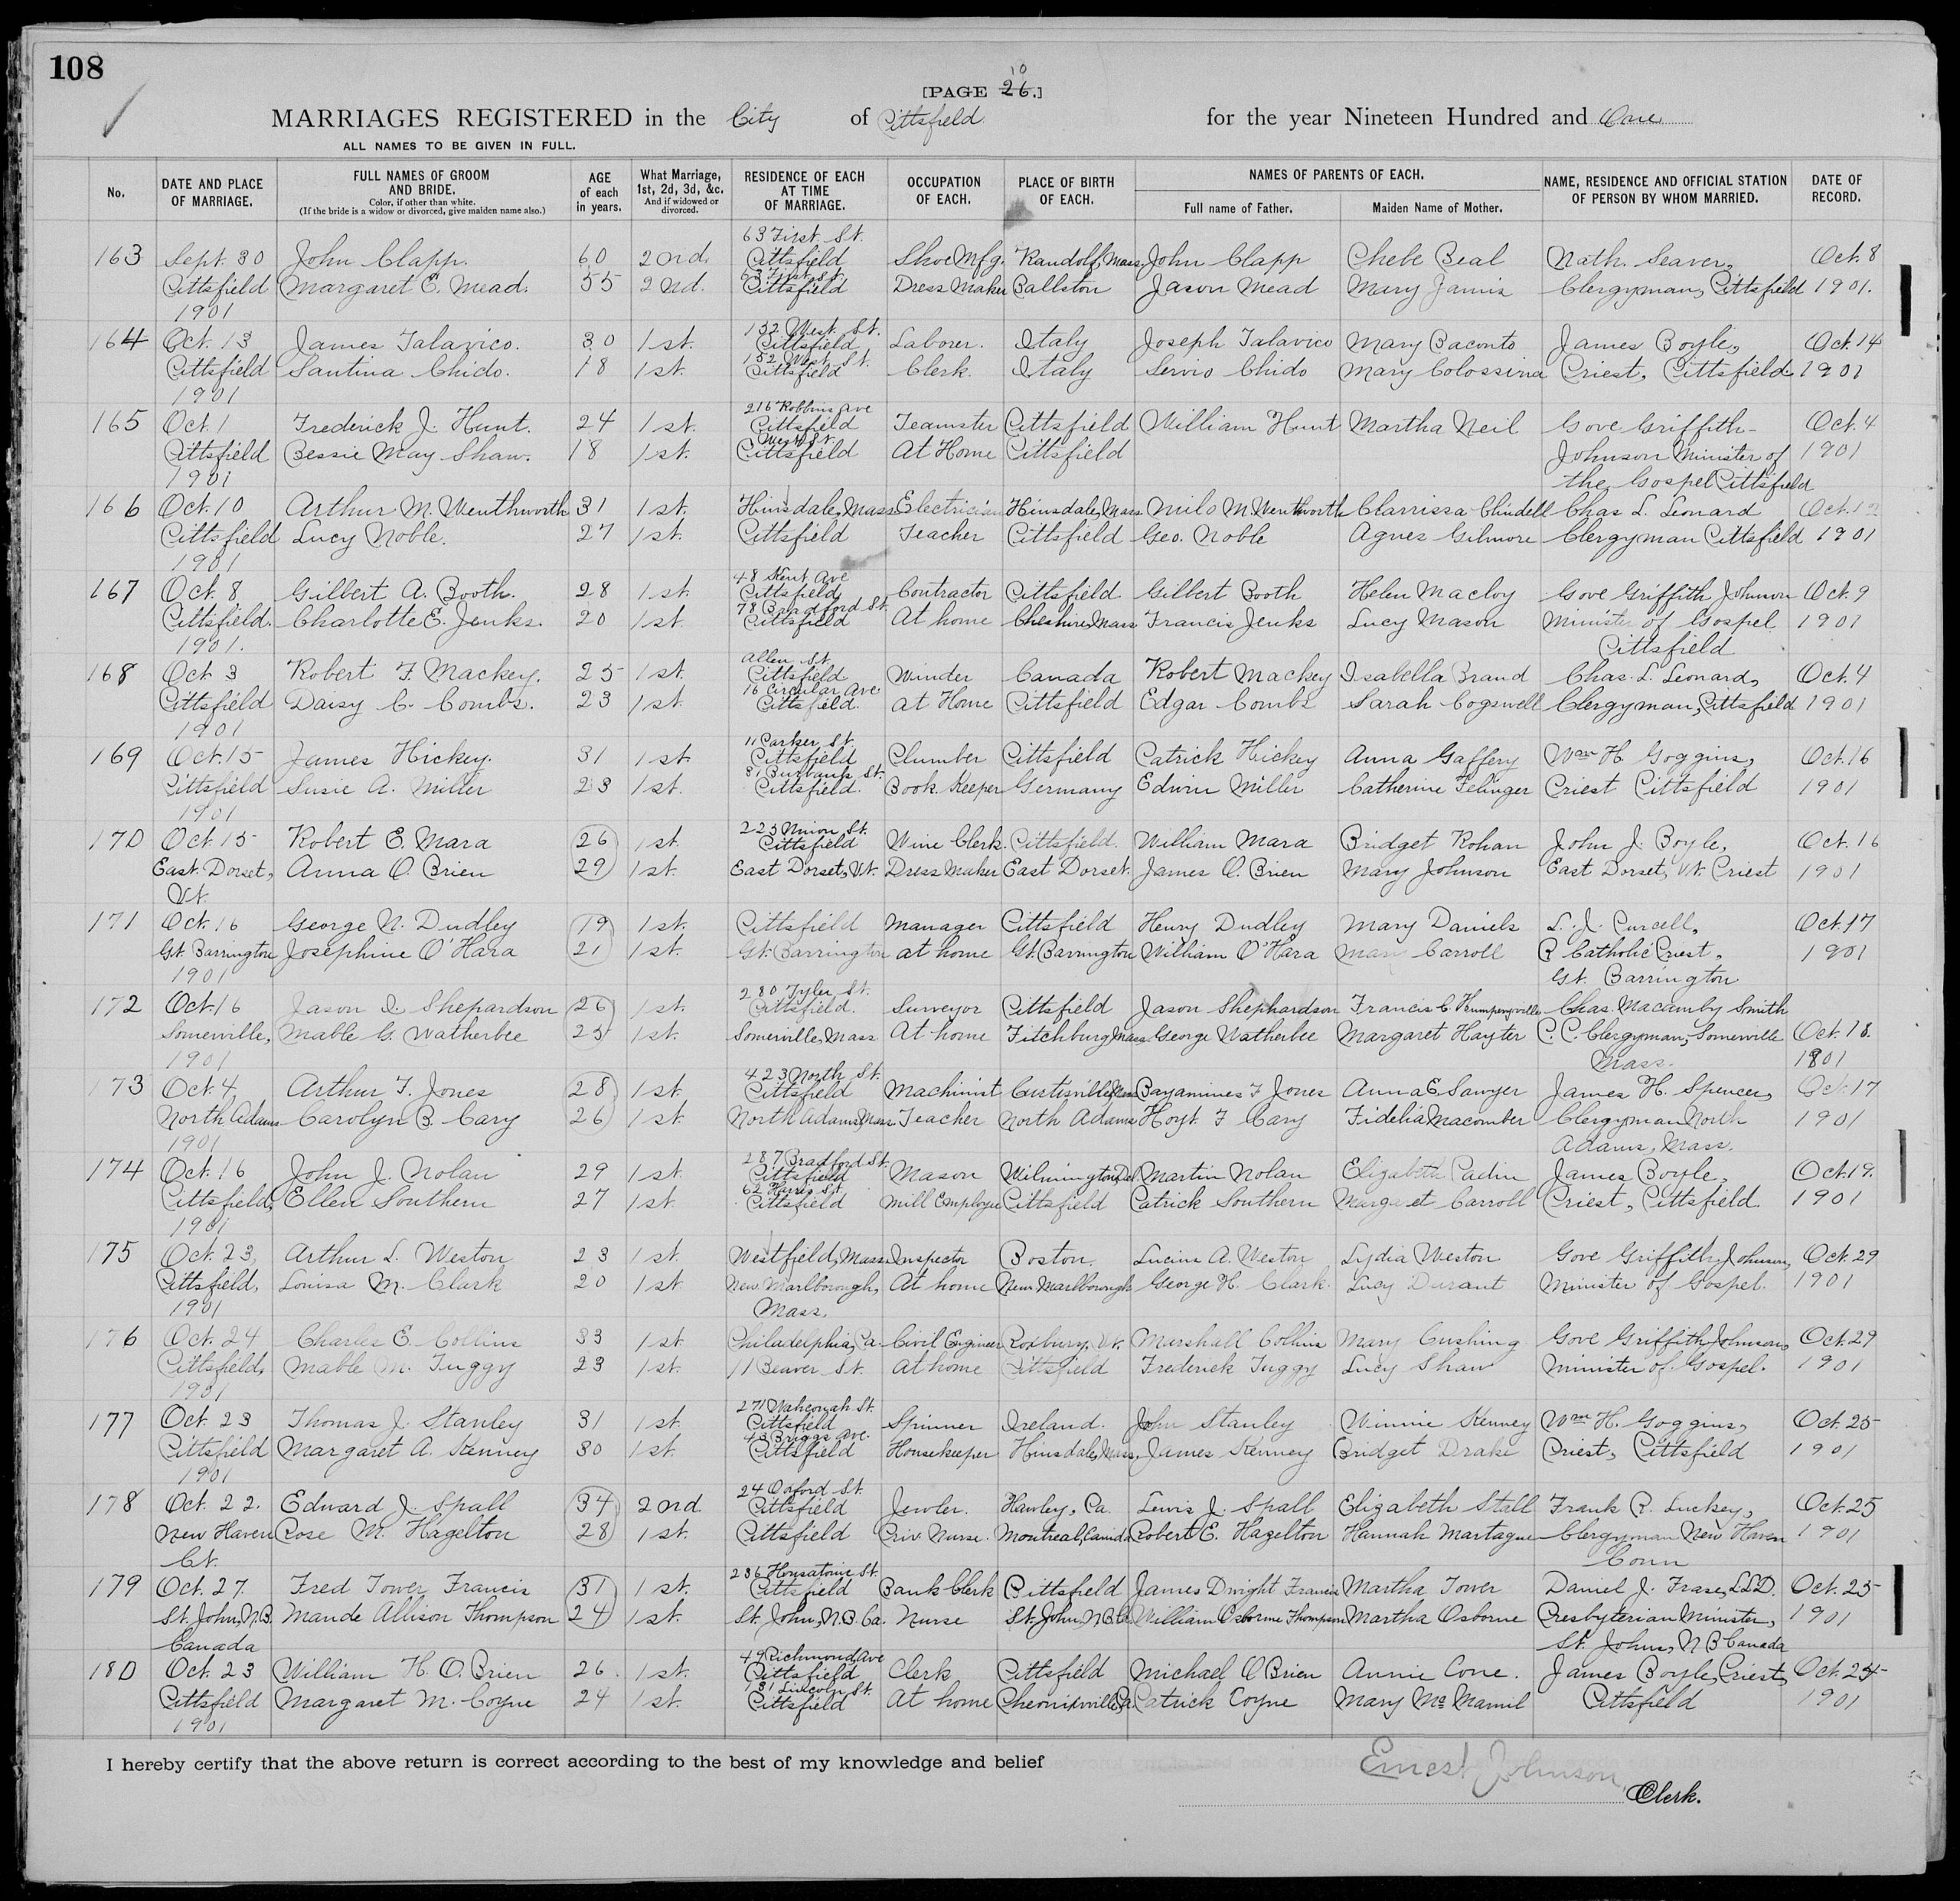 108
[PAGE 26.] 10
MARRIAGES REGISTERED in the City of Pittsfield for the year Nineteen Hundred and One
ALL NAMES TO BE GIVEN IN FULL.
No. DATE AND PLACE OF MARRIAGE. FULL NAMES OF GROOM AND BRIDE. Color, if other than white. (If the bride is a widow or divorced, give maiden name also.) AGE of each in years. What Marriage, 1st, 2d, 3d, &c. And if widowed or divorced. RESIDENCE OF EACH AT TIME OF MARRIAGE. OCCUPATION OF EACH. PLACE OF BIRTH OF EACH. NAMES OF PARENTS OF EACH. Full name of Father. Maiden Name of Mother. NAME, RESIDENCE AND OFFICIAL STATION OF PERSON BY WHOM MARRIED. DATE OF RECORD.
63 First St.
163 Sept. 30 John Clapp. 60 2nd. Pittsfield Shoe Mfg. Randolf, Mass John Clapp Phebe Beal Nath. Seaver, Oct. 8
63 First St.
Pittsfield Margaret E. Mead. 55 2nd. Pittsfield Dress Maker Ballston Jason Mead Mary Clergyman, Pittsfield 1901.
1901
152 West St.
164 Oct. 13 James Talavico. 30 1st. Pittsfield Laborer. Italy Joseph Talavico Mary Baconto James Boyle, Oct. 14
152 West St.
Pittsfield Santina Chido. 18 1st. Pittsfield Clerk. Italy Servio Chido Mary Colossina Priest, Pittsfield. 1901
1901
216 Robbins Ave
165 Oct. 1 Frederick J. Hunt. 24 1st. Pittsfield Teamster Pittsfield William Hunt Martha Neil Gove Griffith- Oct. 4
West St.
Pittsfield Bessie May Shaw. 18 1st. Pittsfield At Home Pittsfield Johnson Minister of 1901
1901 the Gospel Pittsfield
166 Oct. 10 Arthur M. Wenthworth 31 1st. Hinsdale, Mass Electrician Hinsdale, Mass Milo M. Wenthworth Clarrissa Chindell Chas. L. Leonard Oct. 12
Pittsfield Lucy Noble. 27 1st. Pittsfield Teacher Pittsfield Geo. Noble Agnes Gilmore Clergyman Pittsfield 1901
1901
48 Kent Ave
167 Oct. 8 Gilbert A. Booth. 28 1st. Pittsfield Contractor Pittsfield Gilbert Booth Helen Macloy Gove Griffith Johnson Oct. 9
78 Bradford St.
Pittsfield. Charlotte E. Jenks. 20 1st. Pittsfield At home Cheshire, Mass Francis Jenks Lucy Mason Minister of Gospel 1901
1901. Pittsfield
Allen St.
168 Oct 3 Robert F. Mackey. 25 1st. Pittsfield Winder Canada Robert Mackey Isabella Brand Chas. L. Leonard, Oct. 4
16 Circular Ave
Pittsfield Daisy C. Combs. 23 1st. Pittsfield. at Home Pittsfield Edgar Combs Sarah Cogswell Clergyman, Pittsfield 1901
1901
11 Parker St.
169 Oct. 15 James Hickey. 31 1st. Pittsfield Plumber Pittsfield Patrick Hickey Anna Gaffery Wm H. Goggins, Oct. 16
81 Burbank St.
Pittsfield Susie A. Miller 23 1st. Pittsfield. Book Keeper Germany Edwin Miller Catherine Felinger Priest Pittsfield 1901
1901
223 Union St.
170 Oct. 15 Robert E. Mara 26 1st. Pittsfield Wine Clerk. Pittsfield. William Mara Bridget Rohan John J. Boyle, Oct. 16
East Dorset, Anna O. Brien 29 1st. East Dorset, Vt. Dress Maker East Dorset. James O. Brien Mary Johnson East Dorset, Vt. Priest 1901
Vt.
171 Oct. 16 George N. Dudley 19 1st. Pittsfield Manager Pittsfield Henry Dudley Mary Daniels L. J. Purcell, Oct. 17
Gt. Barrington Josephine O'Hara 21 1st. Gt. Barrington at home Gt. Barrington William O'Hara Mary Carroll R Catholic Priest, 1901
1901 Gt. Barrington
280 Tyler St.
172 Oct. 16 Jason Shepardson 26 1st. Pittsfield. Surveyor Pittsfield Jason Shephardson Francis C. Chas. Macamby Smith
Somerville, Mable G. Watherbee 25 1st. Somerville, Mass At home Fitchburg Mass. George Watherbee Margaret Hayter P. C. Clergyman, Somerville Oct. 18.
1901 Mass. 1901
423 North St.
173 Oct. 4, Arthur T. Jones 28 1st. Pittsfield Machinist Curtisville, Mass Bayamines F Jones Anna E Sawyer James H. Spencer, Oct. 17
North Adams Carolyn B. Cary 26 1st. North Adams, Mass Teacher North Adams Hoyt. F Cary Fidelia Macomber Clergyman North 1901
1901 Adams, Mass.
287 Bradford St.
174 Oct. 16 John J. Nolan 29 1st. Pittsfield Mason Wilmington, Del. Martin Nolan Elizabeth Padin James Boyle, Oct. 19.
62 St.
Pittsfield, Ellen Southern 27 1st. Pittsfield Mill Employee Pittsfield Patrick Southern Margaret Carroll Priest, Pittsfield. 1901
1901
175 Oct. 23, Arthur L. Weston 23 1st. Westfield, Mass Inspector Boston. Lucius A. Weston Lydia Weston Gove Griffith Johnson, Oct. 29
Pittsfield, Louisa M. Clark 20 1st New Marlborough, At home New Marlborough George H. Clark. Lucy Durant Minister of Gospel. 1901
1901 Mass.
176 Oct. 24 Charles E. Collins 33 1st. Philadelphia, Pa. Civil Engineer Roxbury, Vt. Marshall Collins Mary Cushing Gove Griffith Johnson, Oct. 29
Pittsfield, Mable M. Tuggy 23 1st. 11 Beaver St. at home Pittsfield Frederick Tuggy Lucy Shaw Minister of Gospel. 1901
1901
271 Wahconah St.
177 Oct. 23 Thomas J. Stanley 31 1st. Pittsfield Spinner Ireland. John Stanley Winnie Kenney Wm H. Goggins, Oct. 25
43 Briggs Ave.
Pittsfield Margaret A. Kenney 30 1st. Pittsfield Housekeeper Hinsdale, Mass, James Kenney Bridget Drake Priest, Pittsfield 1901
1901
24 Oxford St.
178 Oct. 22. Edward J. Spall 34 2nd Pittsfield Jewler. Hawley, Pa. Lewis J. Spall Elizabeth Stall Frank R. Luckey, Oct. 25
New Haven Rose M. Hagelton 28 1st. Pittsfield Priv. Nurse. Montreal, Canada Robert E. Hazelton Hannah Martague Clergyman New Haven 1901
Ct. Conn
236 Housatonic St.
179 Oct. 27. Fred Tower Francis 31 1st. Pittsfield Bank Clerk Pittsfield James Dwight Francis Martha Tower Daniel J. Fraser, LLD. Oct. 25
St. John, N.B. Maude Allison Thompson 24 1st. St. John, N.B. Ca. Nurse St. John, N.B. Ca William Osborne Thompson Martha Osborne Presbyterian Minister, 1901
Canada St. John, N B Canada
49 Richmond Ave
180 Oct. 23 William H. O. Brien 26. 1st. Pittsfield Clerk Pittsfield Michael O'Brien Annie Cone. James Boyle, Priest, Oct. 24
131 Lincoln St.
Pittsfield Margaret M. Coyne 24 1st. Pittsfield At home Pa Patrick Coyne Mary Mc Mamil Pittsfield 1901
1901
I hereby certify that the above return is correct according to the best of my knowledge and belief
Ernest Johnson,
Clerk.